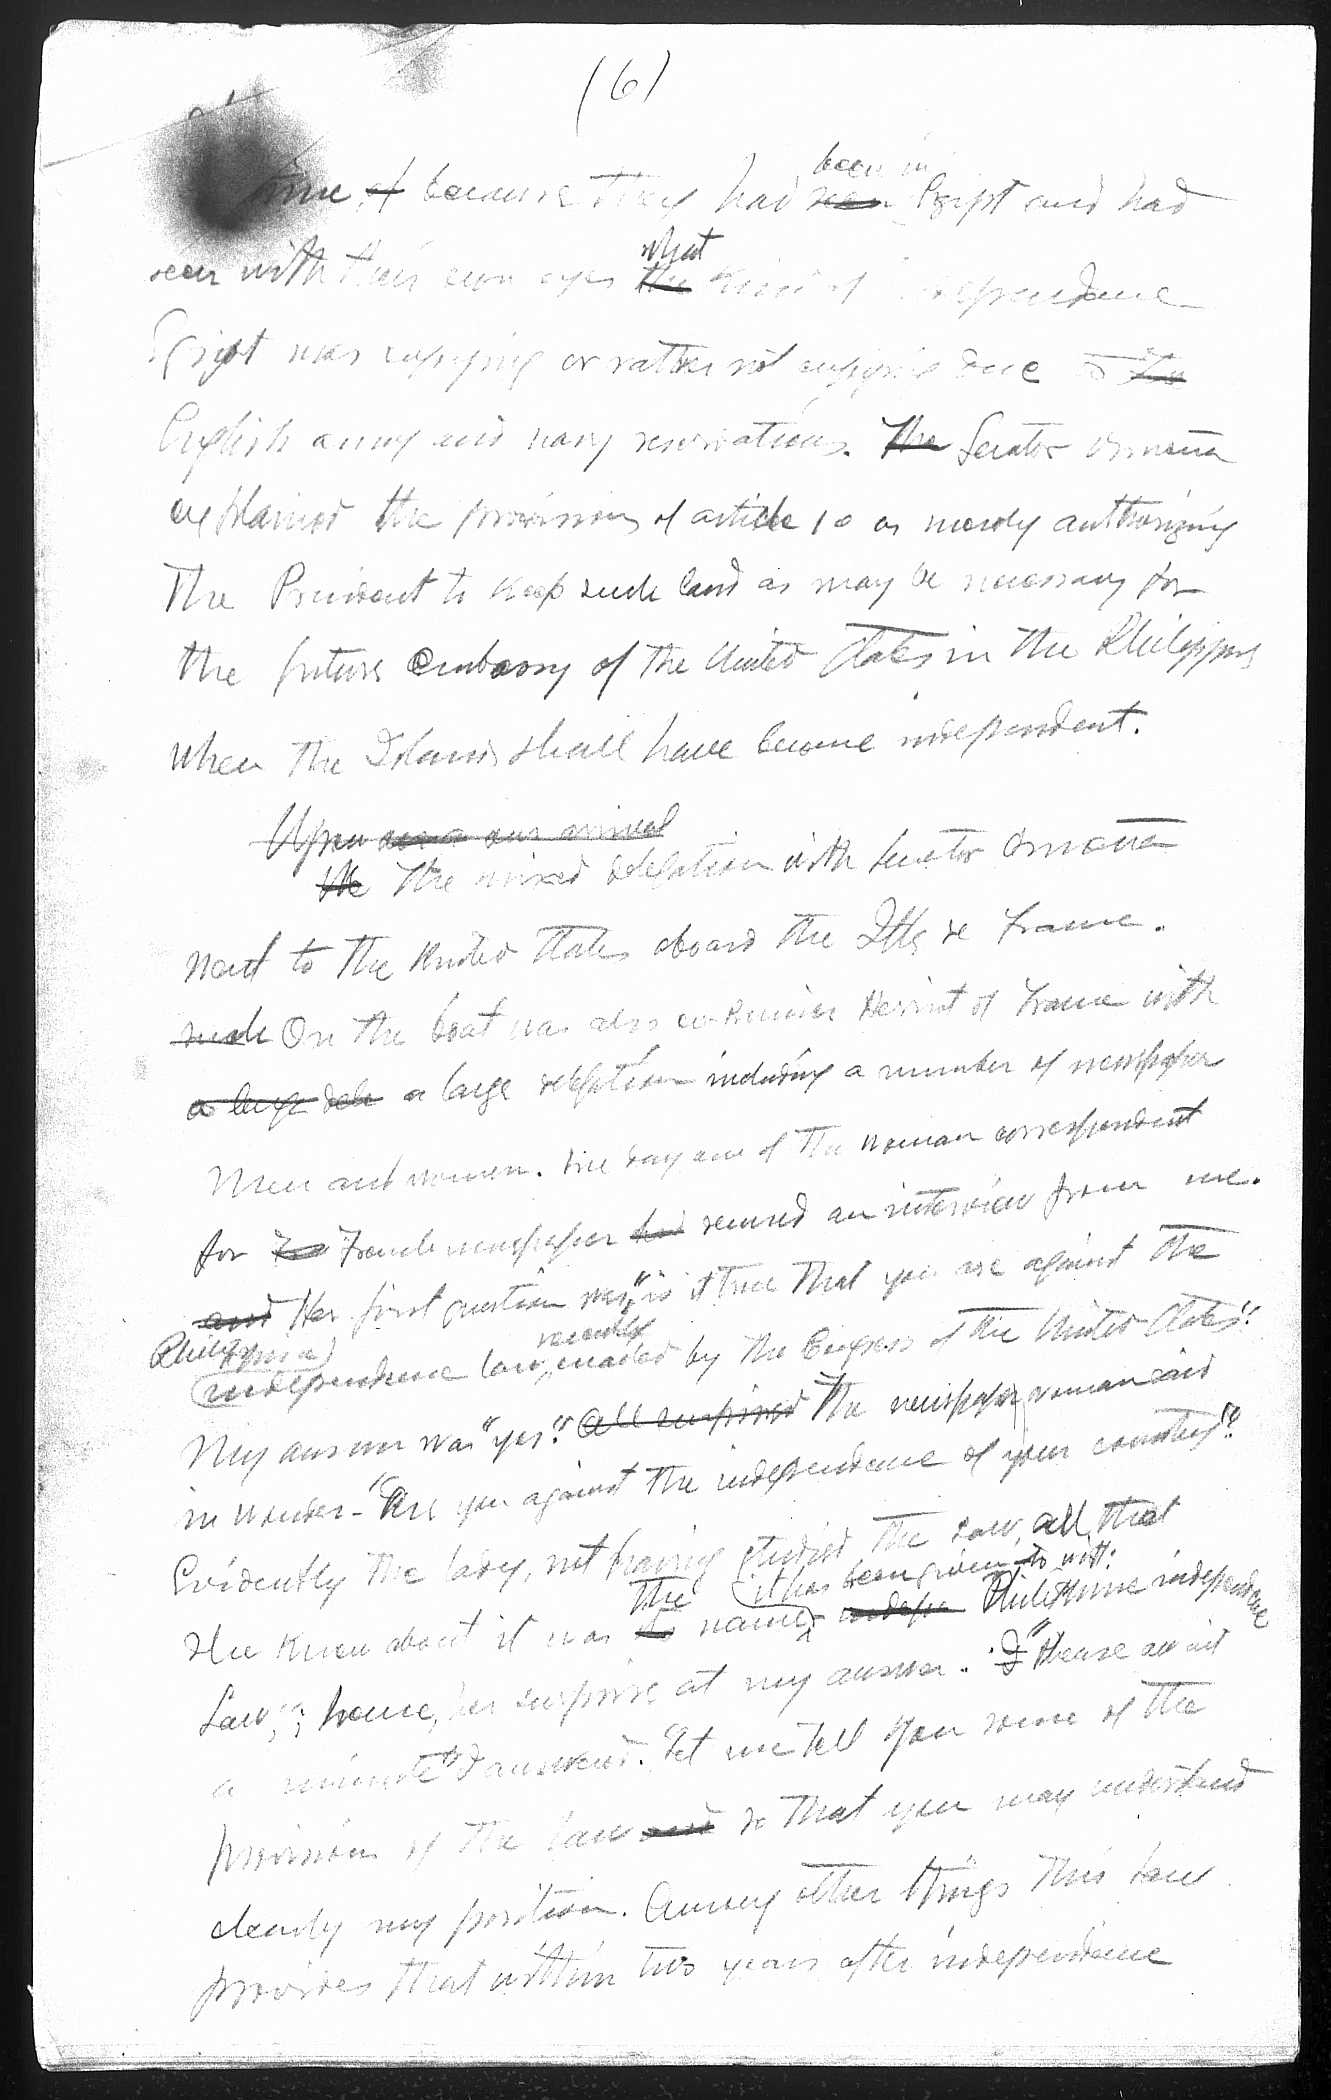 (6)
time, of because they had seen been in Egypt and had
seen with their own eyes the what kind of independence
Egypt was enjoying or rather not enjoying due to the
English army and navy reservations. The Senator Osmeña
explained the provisions of article 10 as merely authorizing
the President to keep such land as may be necessary for
the future embassy of the United States in the Philippines
when the Islands shall have become independent.
Upon our arrival
the The mixed delegation with Senator Osmeña
went to the United States aboard the Ille de France.
On the boat was also ex Premier Herriot of France with
a large dele a large delegation including a number of newspaper
men and women. One day one of the woman correspondent
for French newspaper had secured an interview from me.
and Her first question was, "is it true that you are against the
Philippine
independence law, recently enacted by the Congress of the United States"?
My answer was "yes". all surprised The newspaper woman said
in wonder - "Are you against the independence of your country"?
Evidently the lady, not having studied the law, all that
she knew about it was the name it has been given, to wit: indepen Philippine independence
Law; hence, her surprise at my answer. I "Please wait
a minute" I answered. Let me tell you some of the
provisions of the law and so that you may understand
clearly my position. Among other things this law
provides that within two years after independence